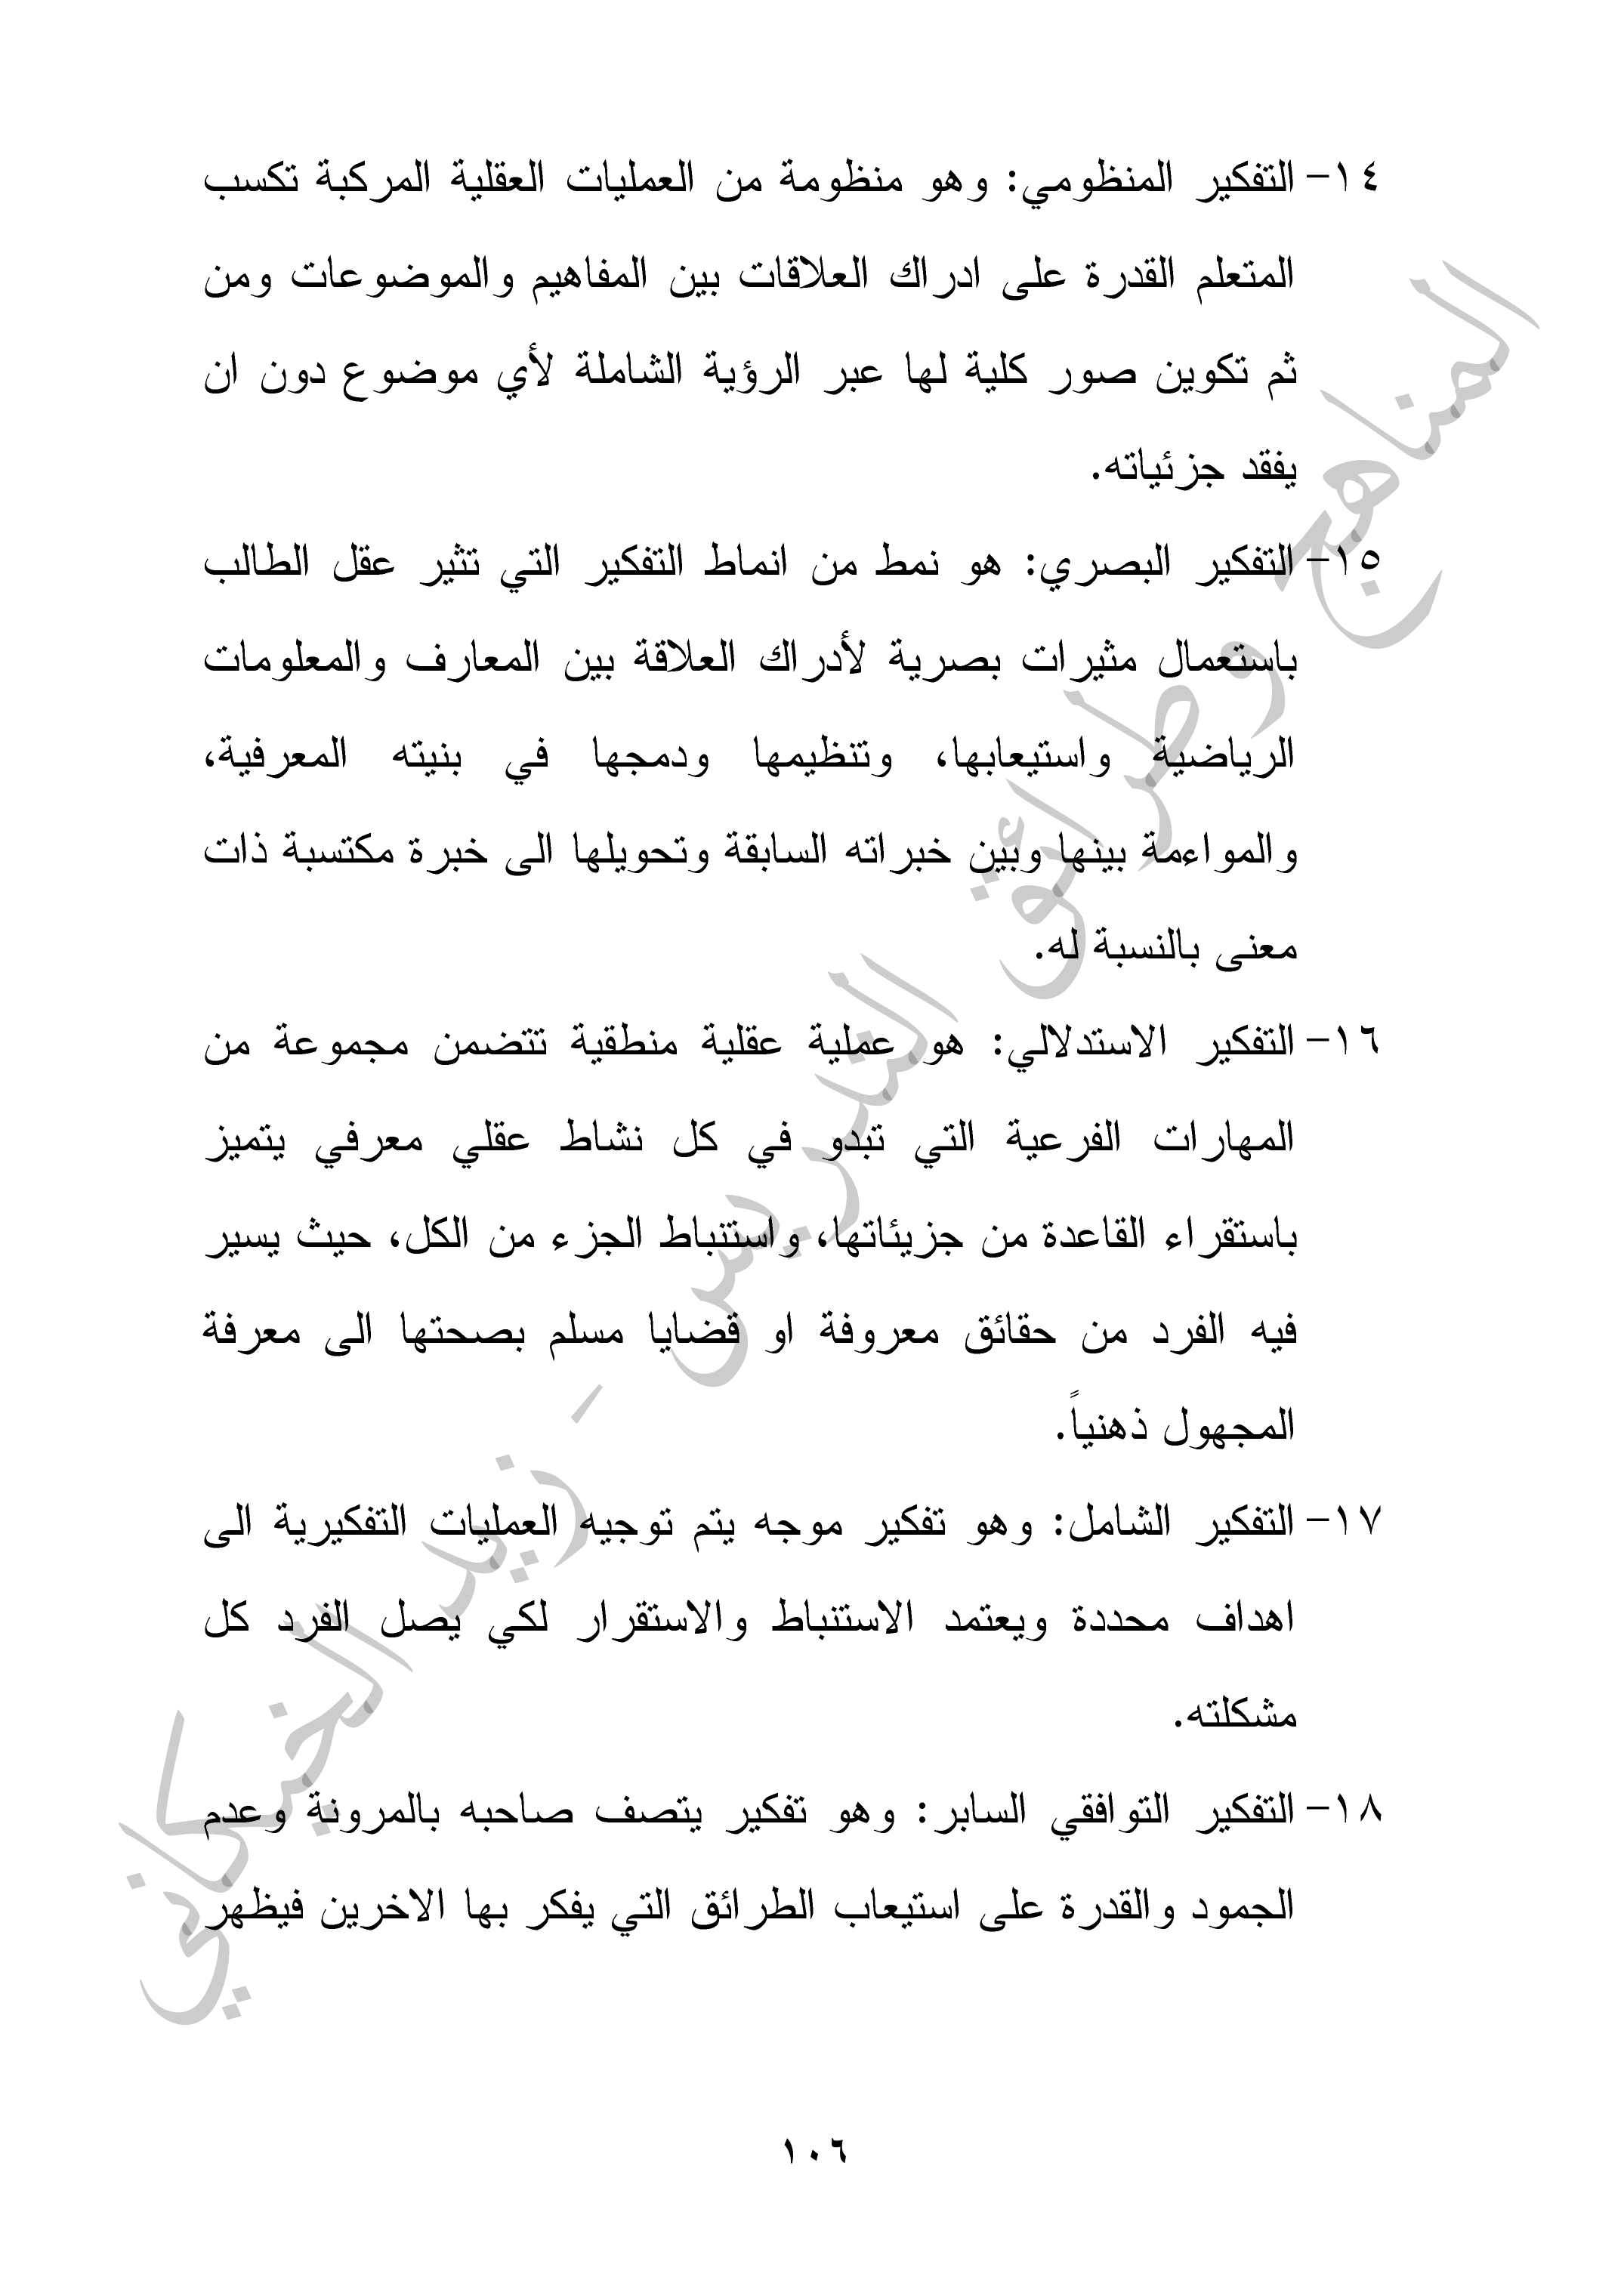 ١٤- التفكير المنظومي: وهو منظومة من العمليات العقلية المركبة تكسب
المتعلم القدرة على ادراك العلاقات بين المفاهيم والموضوعات ومن
ثم تكوين صور كلية لها عبر الرؤية الشاملة لأي موضوع دون ان
يفقد جزئياته.
١٥- التفكير البصري: هو نمط من انماط التفكير التي تثير عقل الطالب
باستعمال مثيرات بصرية لأدراك العلاقة بين المعارف والمعلومات
الرياضية واستيعابها، وتنظيمها ودمجها في بنيته المعرفية،
والمواءمة بينها وبين خبراته السابقة وتحويلها الى خبرة مكتسبة ذات
معنى بالنسبة له.
١٦- التفكير الاستدلالي: هو عملية عقلية منطقية تتضمن مجموعة من
المهارات الفرعية التي تبدو في كل نشاط عقلي معرفي يتميز
باستقراء القاعدة من جزيئاتها، واستنباط الجزء من الكل، حيث يسير
فيه الفرد من حقائق معروفة او قضايا مسلم بصحتها الى معرفة
المجهول ذهنياً.
١٧- التفكير الشامل: وهو تفكير موجه يتم توجيه العمليات التفكيرية الى
اهداف محددة ويعتمد الاستنباط والاستقرار لكي يصل الفرد كل
مشكلته.
١٨- التفكير التوافقي السابر: وهو تفكير يتصف صاحبه بالمرونة وعدم
الجمود والقدرة على استيعاب الطرائق التي يفكر بها الاخرين فيظهر
١٠٦
المناهج وطرائق التدريس - زيد الخيكاني